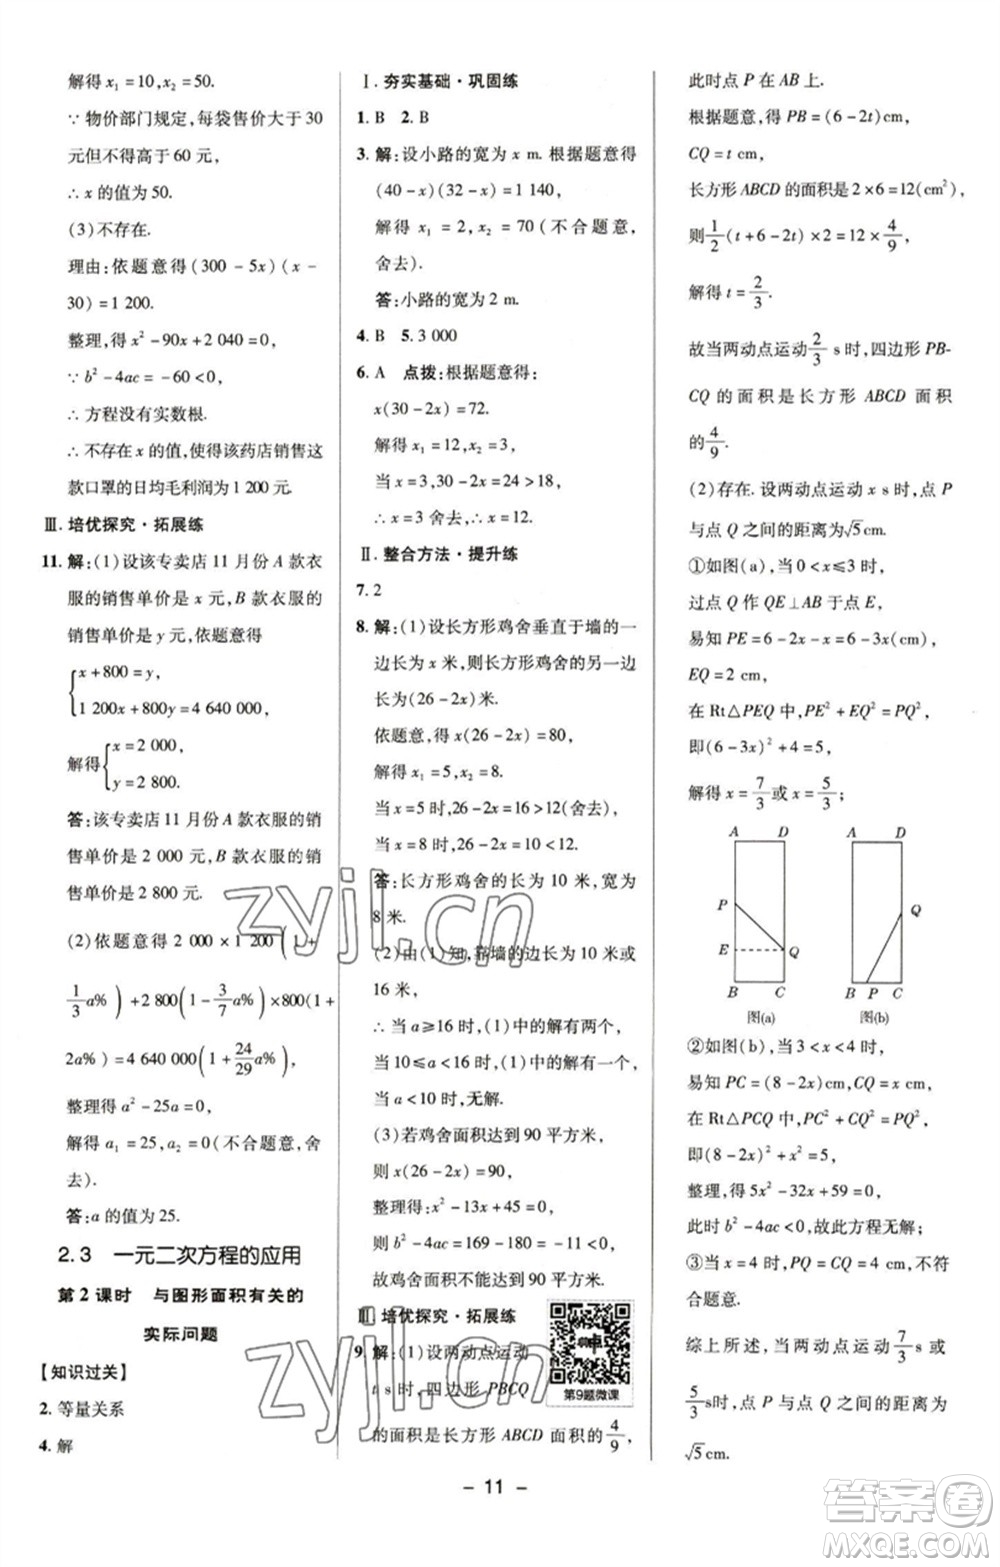 解得 x₁=10,x₂=50.
∵ 物价部门规定,每袋售价大于 30
元但不得高于 60 元,
∴ x 的值为 50.
(3)不存在.
理由:依题意得(300-5x)(x-
30)=1 200.
整理,得 x²-90x+2 040=0.
∵ b²-4ac=-60<0,
∴ 方程没有实数根.
∴ 不存在 x 的值,使得该药店销售该
款口罩的日均毛利润为 1 200 元.
Ⅲ. 培优探究·拓展练
11. 解:(1)设该专卖店 11 月份 A 款衣
服的销售单价是 x 元,B 款衣服的
销售单价是 y 元,依题意得
{x+800=y,
1 200x+800y=4 640 000,
解得{x=2 000,
y=2 800.
答:该专卖店 11 月份 A 款衣服的销
售单价是 2 000 元,B 款衣服的销
售单价是 2 800 元.
(2)依题意得 2 000×1 200(1+
1/3 a%)+2 800(1-3/7 a%)×800(1+
2a%)=4 640 000(1+24/29 a%),
整理得 a²-25a=0,
解得 a₁=25,a₂=0(不合题意,舍
去).
答:a 的值为 25.
2.3 一元二次方程的应用
第 2 课时 与图形面积有关的
实际问题
【知识过关】
2. 等量关系
4. 解
Ⅰ. 夯实基础·巩固练
1. B 2. B
3. 解:设小路的宽为 x m. 根据题意得
(40-x)(32-x)=1 140,
解得 x₁=2,x₂=70(不合题意,
舍去).
答:小路的宽为 2 m.
4. B 5. 3 000
6. A 点拨:根据题意得:
x(30-2x)=72.
解得 x₁=12,x₂=3,
当 x=3,30-2x=24>18,
∴ x=3 舍去,∴ x=12.
Ⅱ. 整合方法·提升练
7. 2
8. 解:(1)设长方形鸡舍垂直于墙的一
边长为 x 米,则长方形鸡舍的另一边
长为(26-2x)米.
依题意,得 x(26-2x)=80,
解得 x₁=5,x₂=8.
当 x=5 时,26-2x=16>12(舍去),
当 x=8 时,26-2x=10<12.
答:长方形鸡舍的长为 10 米,宽为
8 米.
(2)由(1)知,靠墙的边长为 10 米或
16 米,
∴ 当 a≥16 时,(1)中的解有两个,
当 10≤a<16 时,(1)中的解有一个,
当 a<10 时,无解.
(3)若鸡舍面积达到 90 平方米,
则 x(26-2x)=90,
整理得:x²-13x+45=0,
b²-4ac=169-180=-11<0,
故鸡舍面积不能达到 90 平方米.
Ⅲ. 培优探究·拓展练
9. 解:(1)设两动点运动
t s 时,四边形 PBCQ
的面积是长方形 ABCD 面积的4/9,
第9题微课
此时点 P 在 AB 上.
根据题意,得 PB=(6-2t)cm,
CQ=t cm,
长方形 ABCD 的面积是 2×6=12(cm²),
则1/2(t+6-2t)×2=12×4/9,
解得 t=2/3.
故当两动点运动2/3 s 时,四边形 PB-
CQ 的面积是长方形 ABCD 面积
的4/9.
(2)存在. 设两动点运动 x s 时,点 P
与点 Q 之间的距离为√5cm.
①如图(a),当 0<x≤3 时,
过点 Q 作 QE⊥AB 于点 E,
易知 PE=6-2x-x=6-3x(cm),
EQ=2 cm,
在 Rt△PEQ 中,PE²+EQ²=PQ²,
即(6-3x)²+4=5,
解得 x=7/3或 x=5/3;
A D
P
E Q
B C
图(a)
A D
Q
B P C
图(b)
②如图(b),当 3<x<4 时,
易知 PC=(8-2x)cm,CQ=x cm,
在 Rt△PCQ 中,PC²+CQ²=PQ²,
即(8-2x)²+x²=5,
整理,得 5x²-32x+59=0,
此时 b²-4ac<0,故此方程无解;
③当 x=4 时,PQ=CD=4≠√5,不符
合题意.
综上所述,当两动点运动7/3 s 或
5/3 s时,点 P 与点 Q 之间的距离为
√5 cm.
- 11 -
zyjl.cn
zyjl.cn
答案卷
MXQE.COM